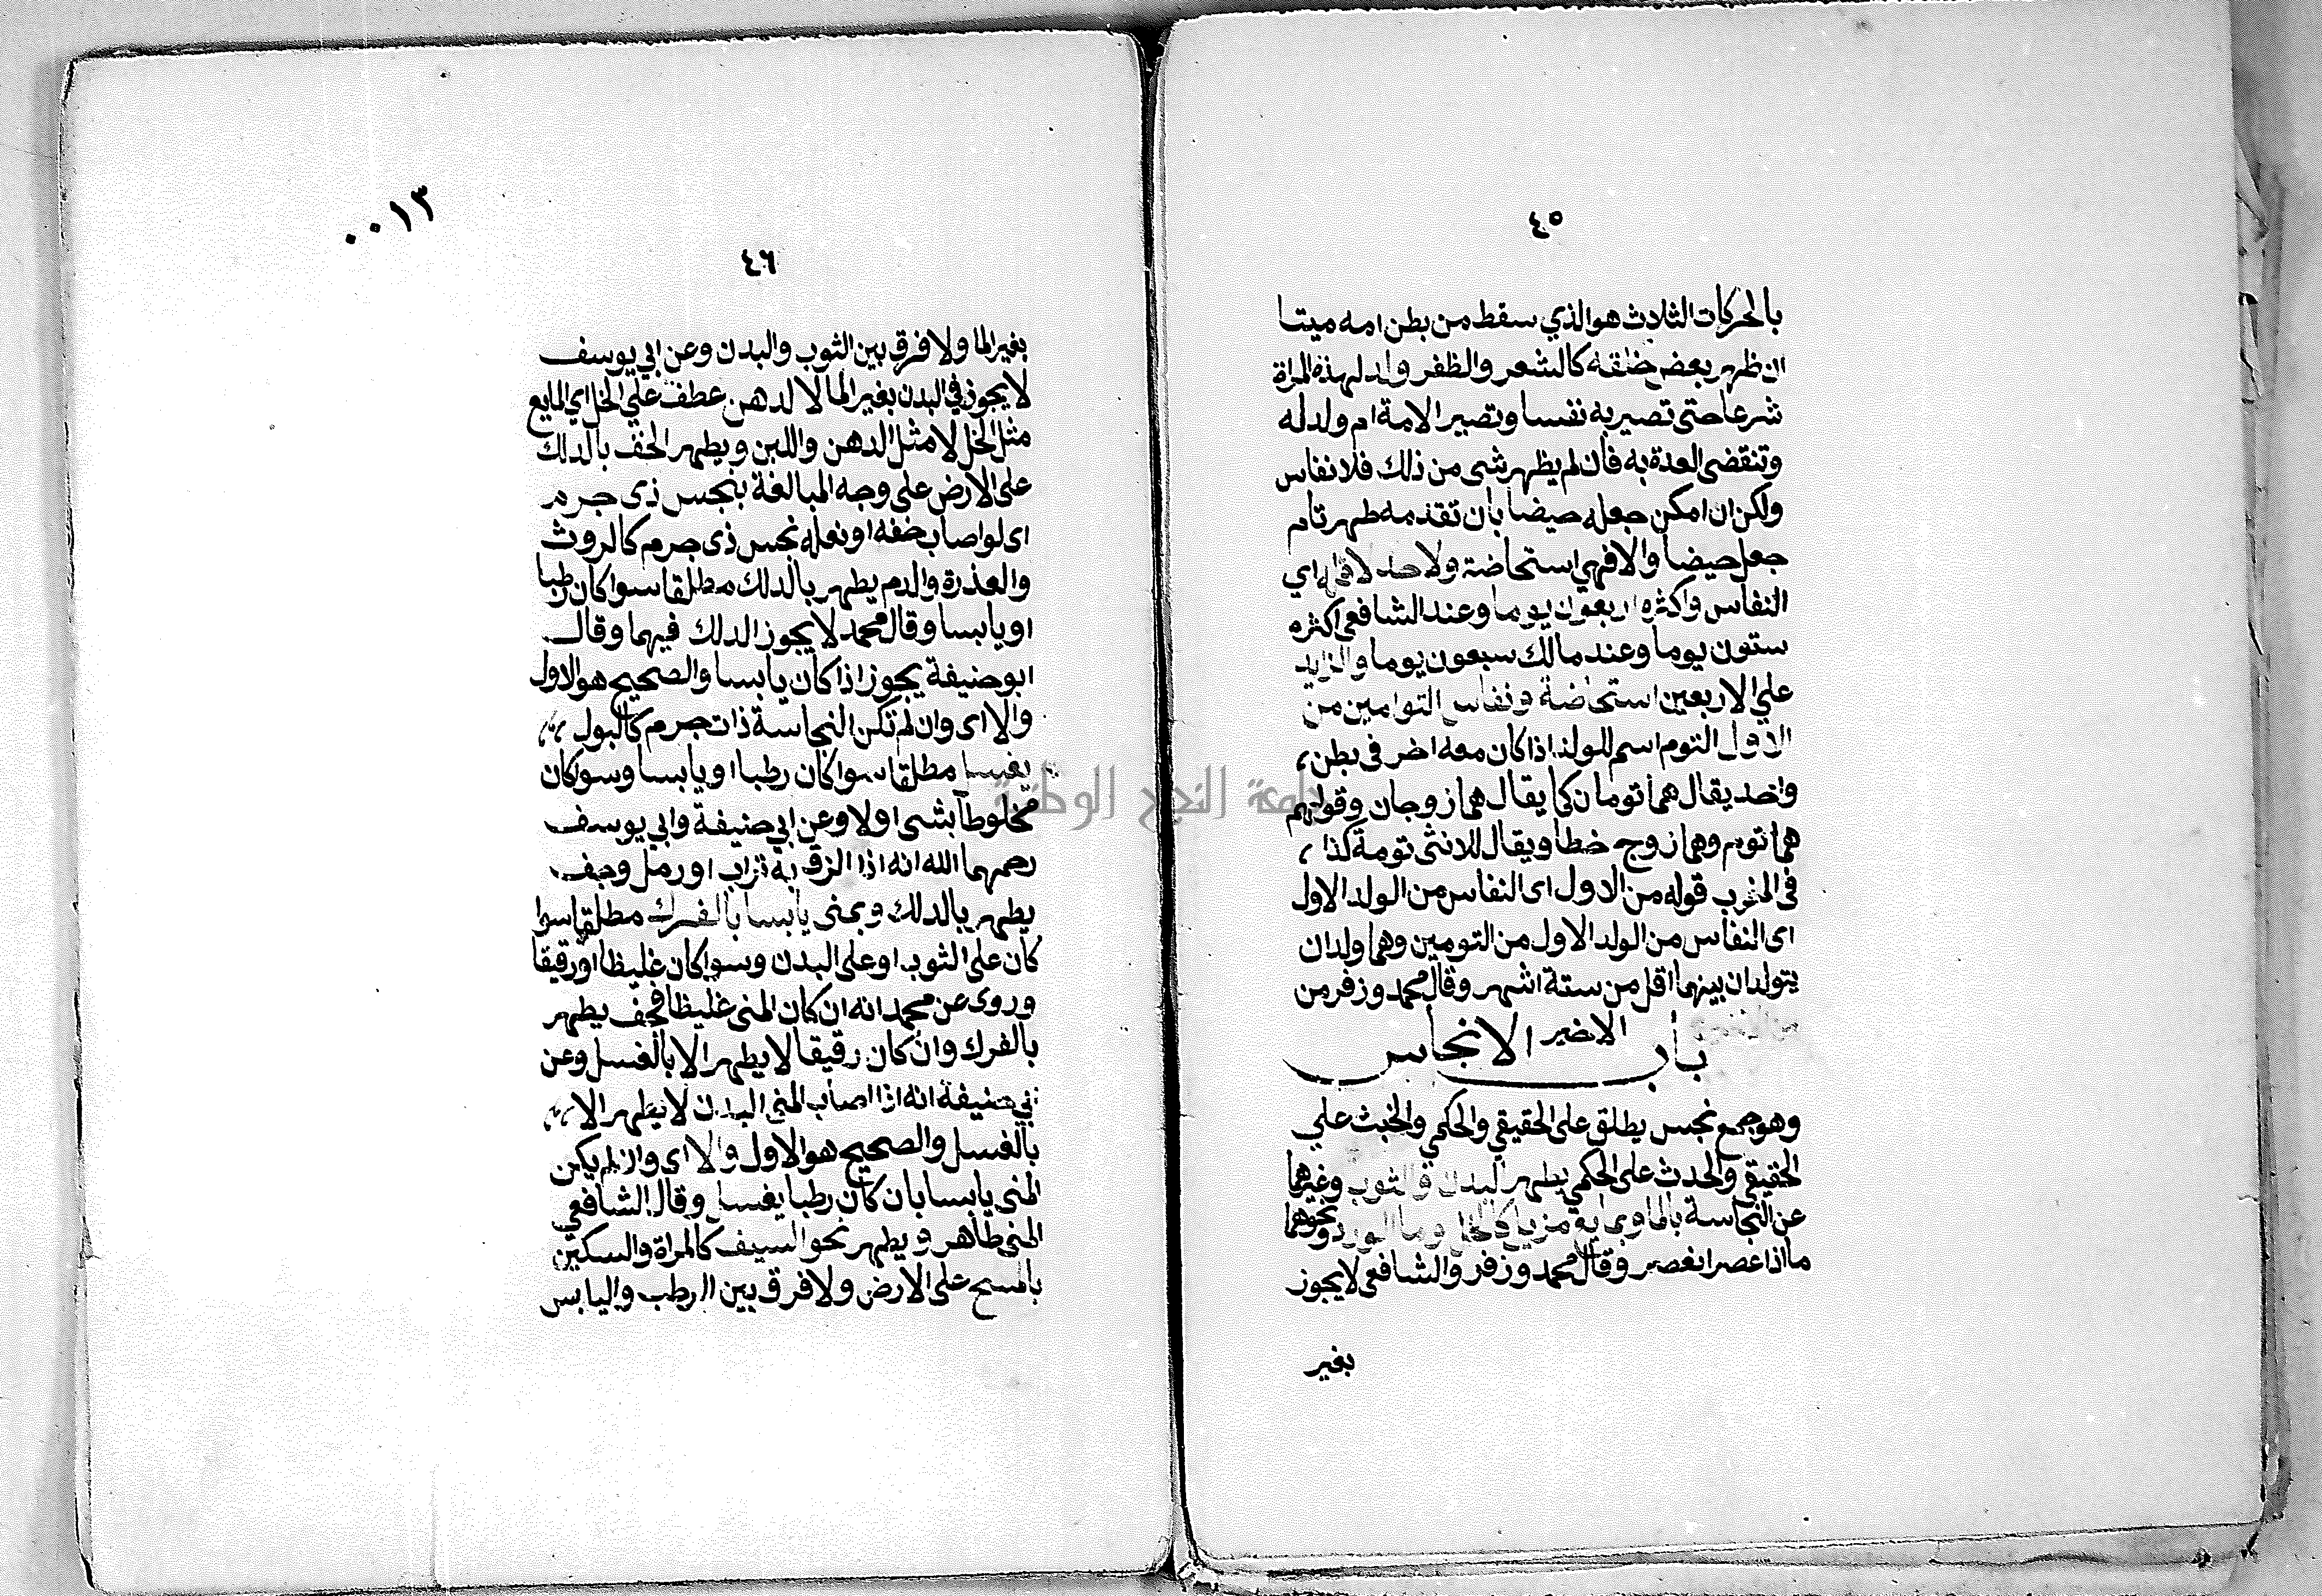 ٤٥
بالحركات الثلاث هو الذي سقط من بطن امه ميتا
ان ظهر بعض خلقه كالشعر والظفر ولد لهذه المراة
شرعا حتى تصير به نفسا وتصير الامة ام ولد له
وتنقضى العدة به فان لم يظهر شى من ذلك فلا نفاس
ولكن ان امكن جعله حيضا بان تقدمه طهر تام
جعل حيضا والا فهي استحاضة ولا حد لاقله اي
النفاس واكثره اربعون يوما وعند الشافعى اكثره
ستون يوما وعند مالك سبعون يوما والزايد
علي الاربعين استحاضة ونفاس التوامين من
الاول التوم اسم للولد اذا كان معه اخر فى بطن
واحد يقال هما تومان كما يقال هما زوجان وقولهم
هما توم وهما زوج خطا ويقال للانثى تومة كذا
فى المغرب قوله من الاول اى النفاس من الولد الاول
اى النفاس من الولد الاول من التومين وهما ولدان
يتولدان بينهما اقل من ستة اشهر وقال محمد وزفر من
الاخير
باب الانجاس
وهو جمع نجس يطلق على الحقيقي والحكمي والخبث علي
الحقيقي والحدث على الحكمي يطهر البدن والثوب وغيرهما
عن النجاسة بالما وبمايع مزيل كالخل وما الورد ونحوهما
ما اذا عصر انعصر وقال محمد وزفر والشافعى لا يجوز
بغير
٠٠١٣
٤٦
بغير الما ولا فرق بين الثوب والبدن وعن ابي يوسف
لا يجوز في البدن بغير الما لا الدهن عطف علي الخل اي المايع
مثل الخل لا مثل الدهن واللبن ويطهر الخف بالدلك
على الارض على وجه المبالغة بنجس ذى جرم
اى لو اصاب خفه او نعله نجس ذى جرم كالروث
والعذرة والدم يطهر بالدلك مطلقا سوا كان رطبا
او يابسا وقال محمد لا يجوز الدلك فيهما وقال
ابو حنيفة يجوز اذا كان يابسا والصحيح هو الاول
والا اى وان لم تكن النجاسة ذات جرم كالبول
يغسل مطلقا سوا كان رطبا او يابسا وسوا كان
مخلوطا بشى اولا وعن ابي حنيفة وابي يوسف
رحمهما الله انه اذا الزق به تراب او رمل وجف
يطهر بالدلك وبمنى يابسا بالفرك مطلقا سوا
كان على الثوب او على البدن وسوا كان غليظا او رقيقا
وروى عن محمد انه ان كان المنى غليظا فجف يطهر
بالفرك وان كان رقيقا لا يطهر الا بالغسل وعن
ابي حنيفة انه اذا اصاب المنى البدن لا يطهر الا
بالغسل والصحيح هو الاول والا اى وان لم يكن
المنى يابسا بان كان رطبا يغسل وقال الشافعي
المنى طاهر ويطهر نحو السيف كالمراة والسكين
بالمسح على الارض ولا فرق بين الرطب واليابس
جامعة النجاح الوطنية